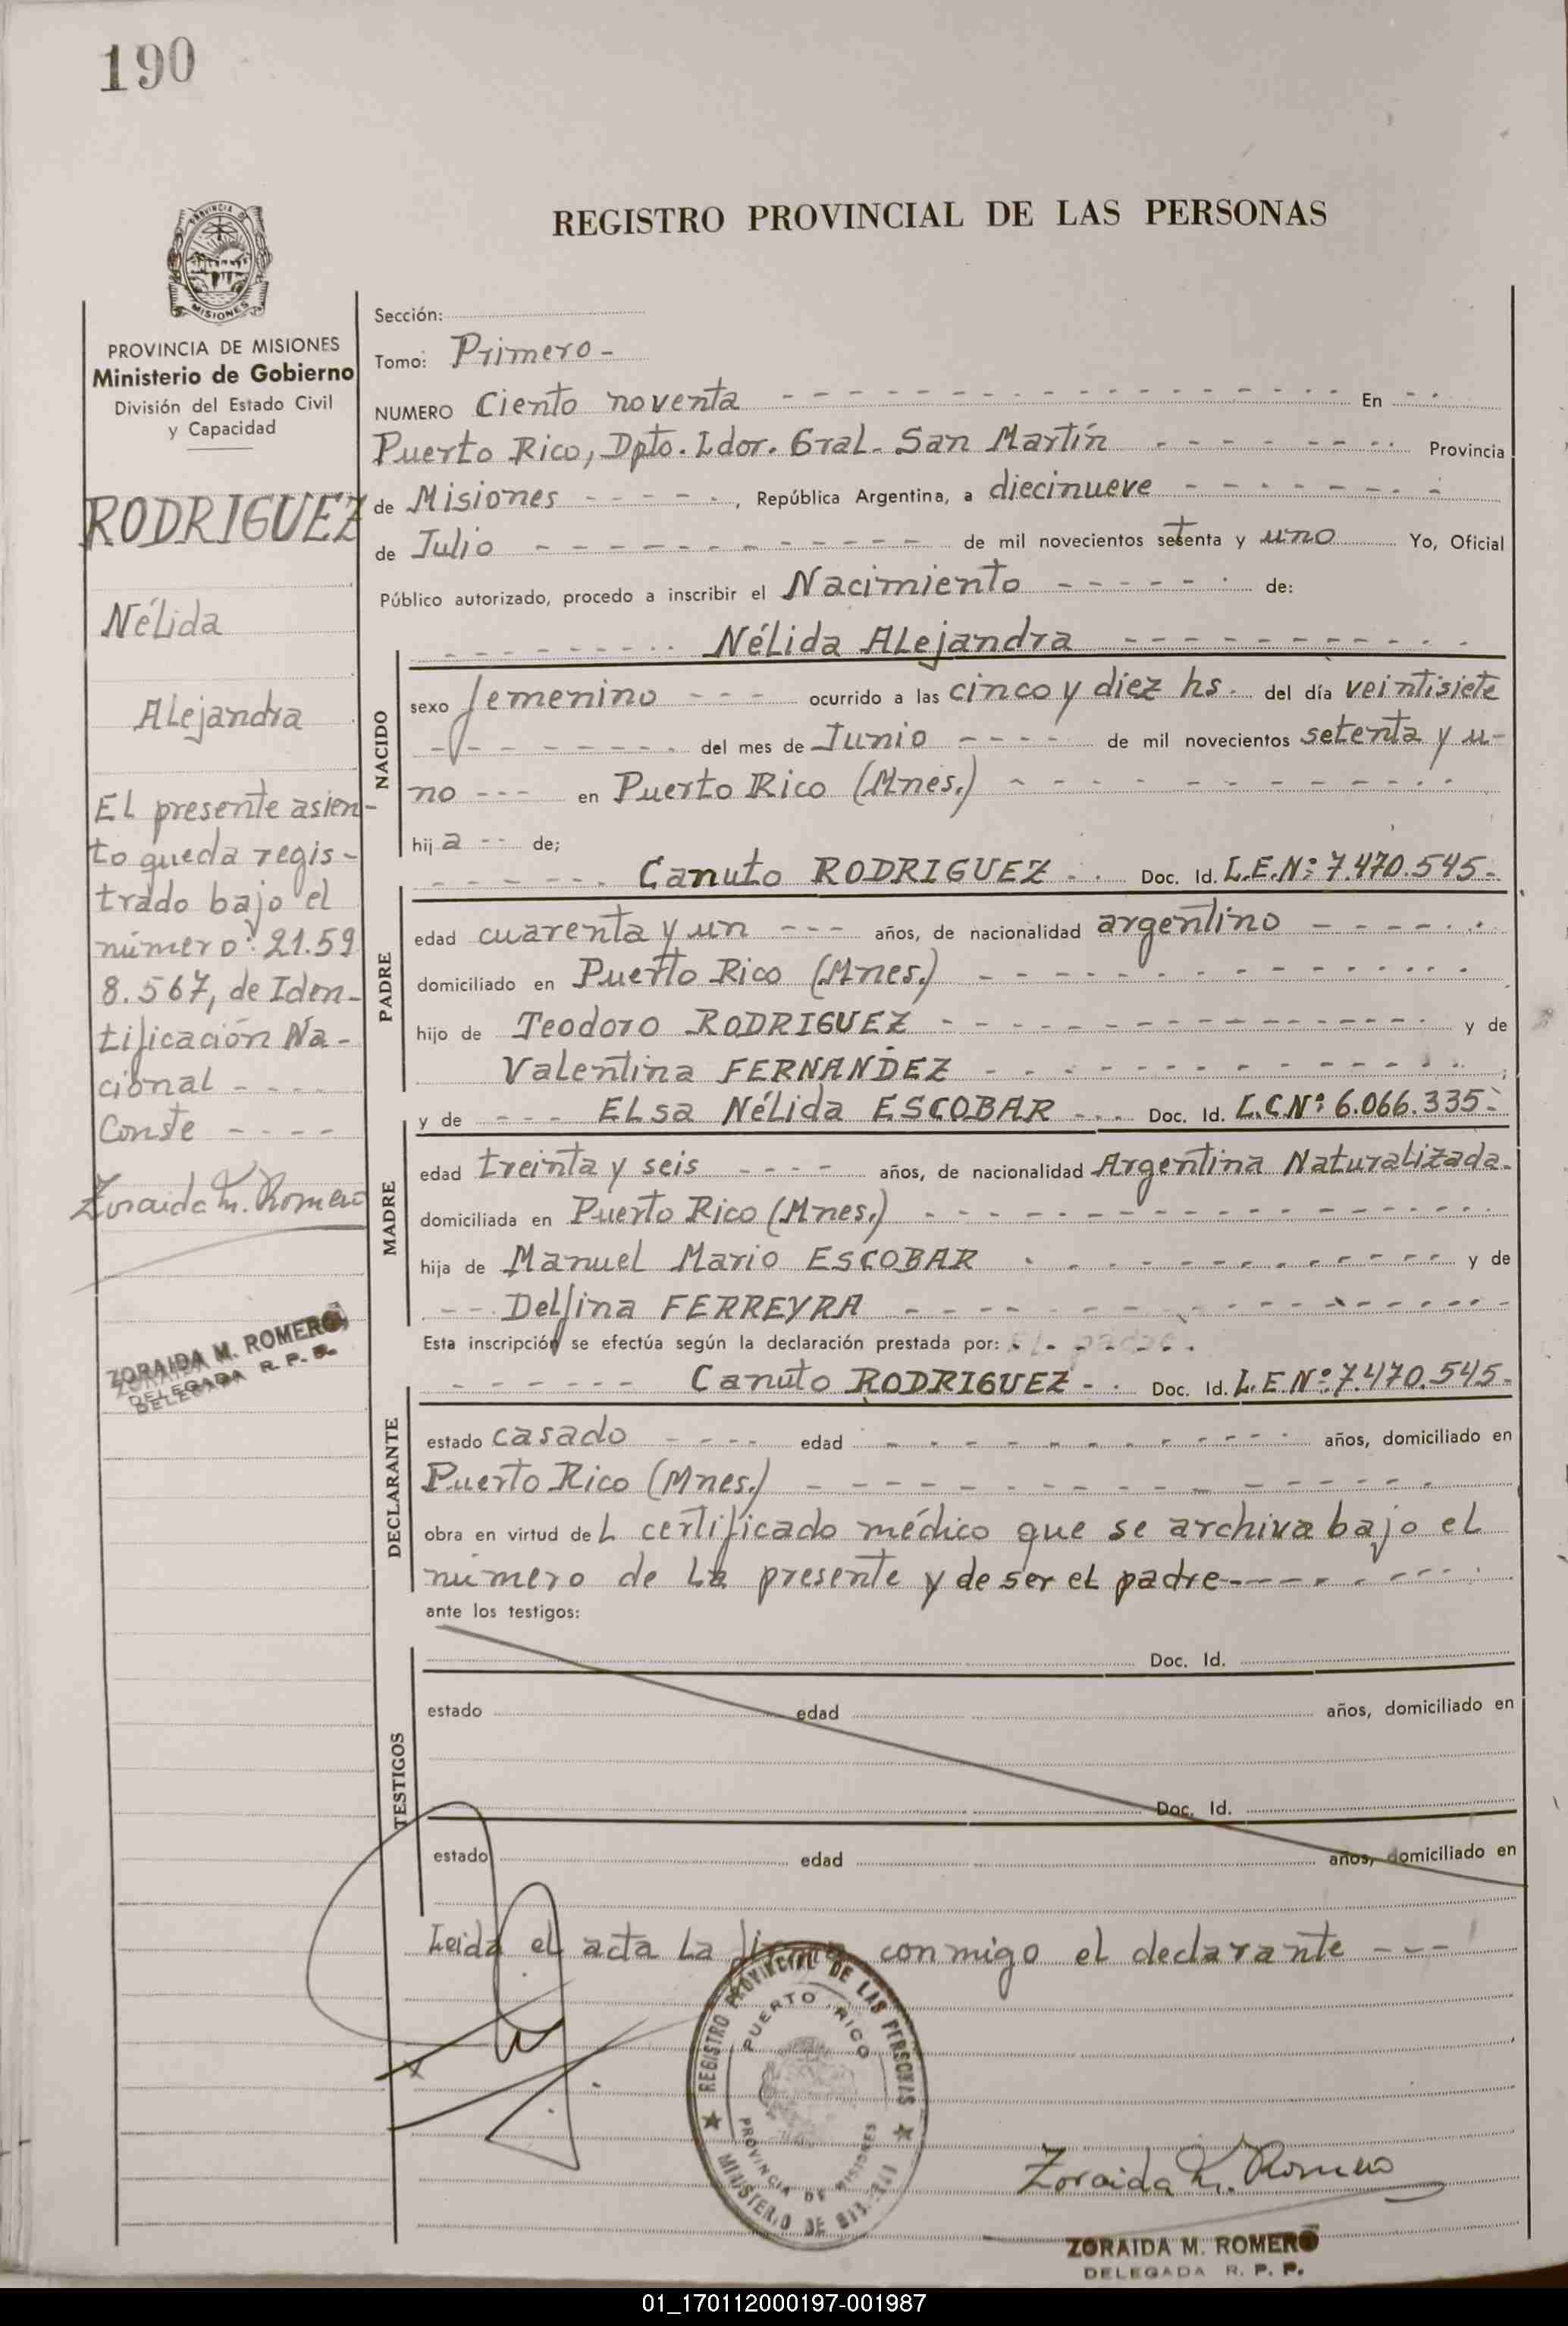 190
MISIONES
PROVINCIA DE MISIONES
Ministerio de Gobierno
División del Estado Civil
y Capacidad
RODRIGUEZ
Nélida
Alejandra
El presente asien-
to queda regis-
trado bajo el
número: 21.59
8.567, de Iden-
tificación Na-
cional - - - -
Conste - - - -
Zoraida M. Romero
ZORAIDA M. ROMERO
DELEGADA R. P. P.
REGISTRO PROVINCIAL DE LAS PERSONAS
Sección:
Tomo: Primero -
NUMERO Ciento noventa - - - En - -
Puerto Rico, Dpto. Ldor. Gral. San Martín - - - Provincia
de Misiones - - - , República Argentina, a diecinueve - - -
de Julio - - - de mil novecientos setenta y uno Yo, Oficial
Público autorizado, procedo a inscribir el Nacimiento - - - de:
- - - Nélida Alejandra - - -
NACIDO
sexo femenino - - - ocurrido a las cinco y diez hs. del día veintisiete
- - - del mes de Junio - - - de mil novecientos setenta y u-
no - - - en Puerto Rico (Mnes.) - - -
hija - - de;
- - - Canuto RODRIGUEZ - - Doc. Id. L.E.Nº: 7.470.545-
PADRE
edad cuarenta y un - - - años, de nacionalidad argentino - - -
domiciliado en Puerto Rico (Mnes.) - - -
hijo de Teodoro RODRIGUEZ - - - y de
Valentina FERNANDEZ - - - ;
y de - - - Elsa Nélida ESCOBAR - - - Doc. Id. L.C.Nº: 6.066.335-
MADRE
edad treinta y seis - - - - años, de nacionalidad Argentina Naturalizada.
domiciliada en Puerto Rico (Mnes.) - - -
hija de Manuel Mario ESCOBAR - - - y de
- - - Delfina FERREYRA - - -
Esta inscripción se efectúa según la declaración prestada por: El padre.
- - - Canuto RODRIGUEZ - - Doc. Id. L.E.Nº: 7.470.545-
DECLARANTE
estado casado - - - - edad - - - años, domiciliado en
Puerto Rico (Mnes.) - - -
obra en virtud del certificado médico que se archiva bajo el
número de la presente y de ser el padre - - -
ante los testigos:
TESTIGOS
Doc. Id.
estado edad años, domiciliado en
Doc. Id.
estado edad años, domiciliado en
Leida el acta la firma conmigo el declarante - - -
REGISTRO PROVINCIAL DE LAS PERSONAS
PUERTO RICO
PROVINCIA DE MISIONES
MINISTERIO DE
Zoraida M. Romero
ZORAIDA M. ROMERO
DELEGADA R. P. P.
01_170112000197-001987